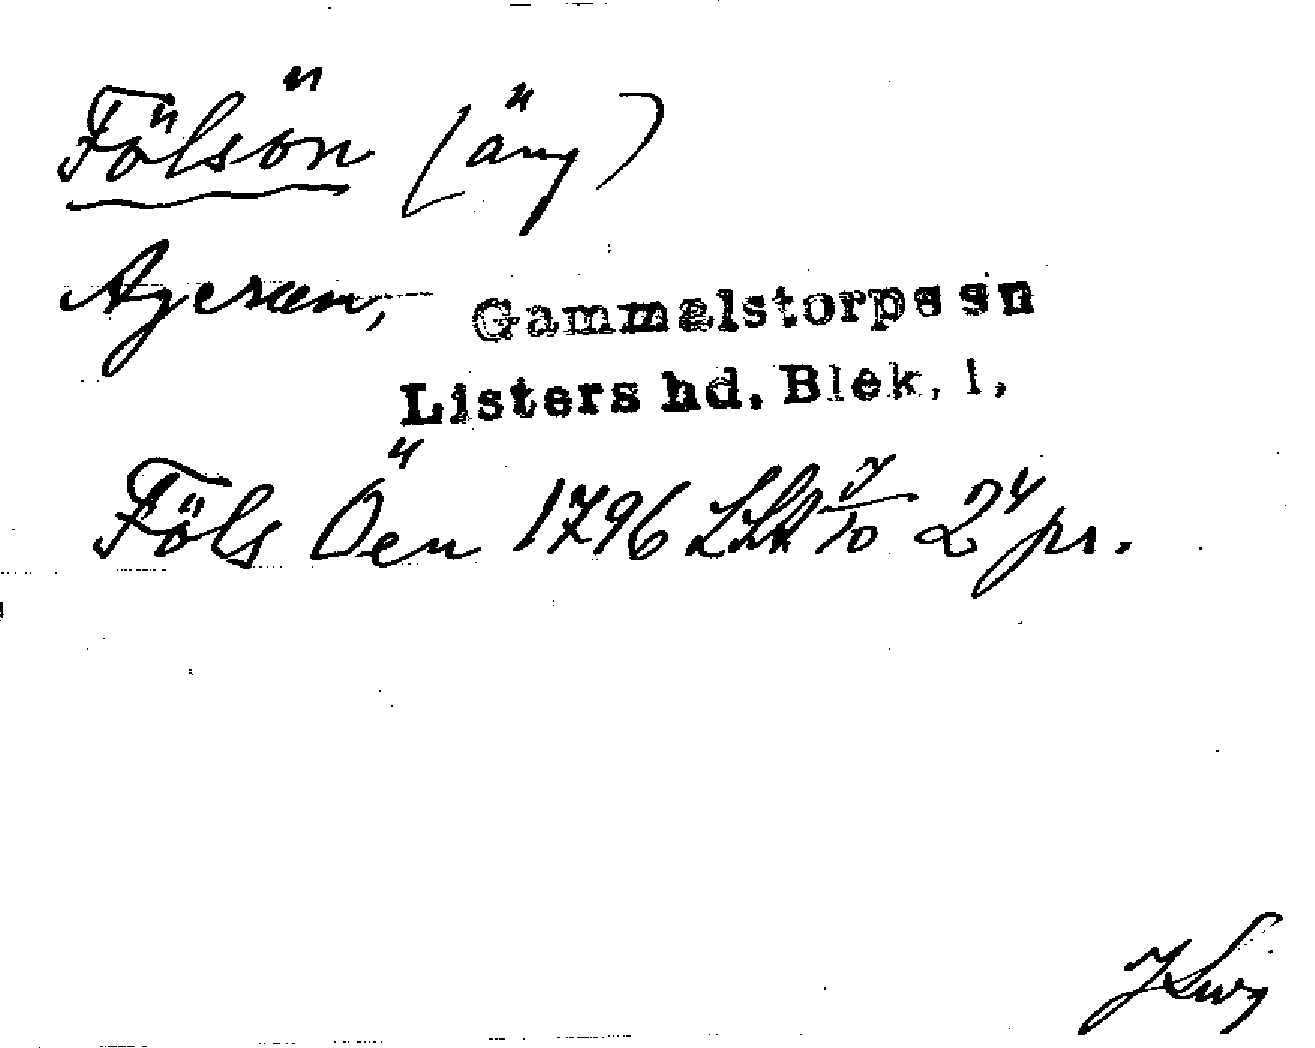 Fölsön (äng)
Agerum, Gammalstorps sn
Listers hd. Blek. l.
Föls Öen 1796 LSA 7/10 24 pr.